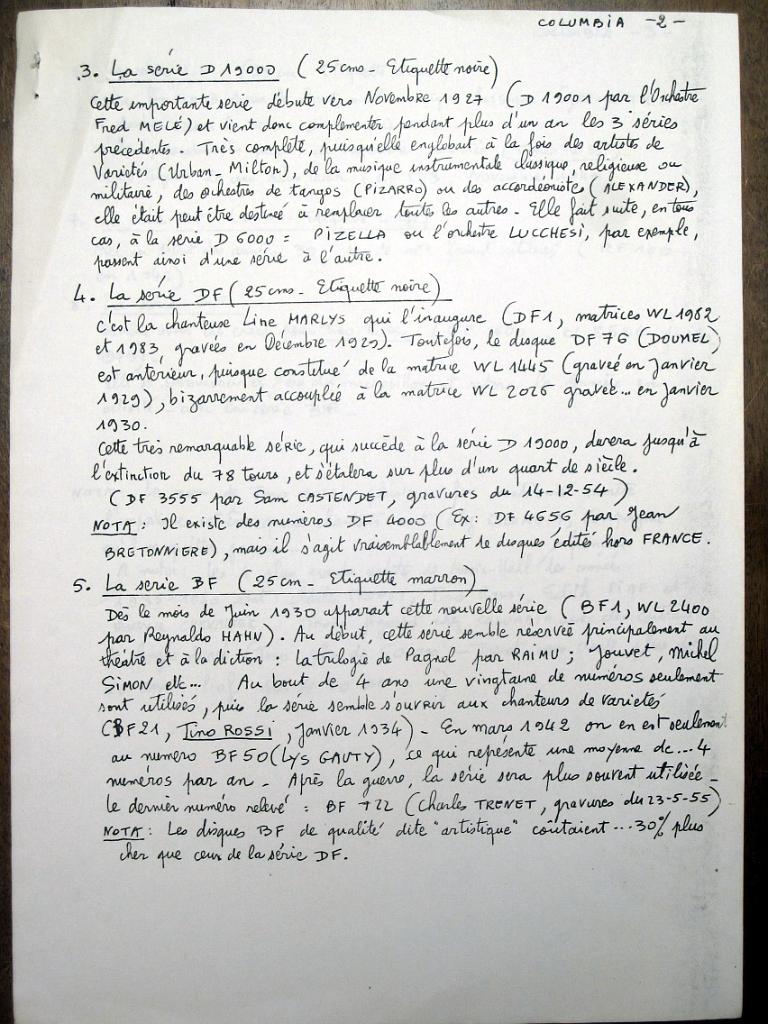 COLUMBIA -2-
3. La série D 19000 (25cms - Etiquette noire)
Cette importante serie débute vers Novembre 1927 (D 19001 par l'Orchestre
Fred MELÉ) et vient donc complementer pendant plus d'un an les 3 séries
précédentes. Très complète, puisqu'elle englobait à la fois des artistes de
Variétés (Urban - Milton), de la musique instrumentale classique, religieuse ou
militaire, des orchestres de tangos (PIZARRO) ou des accordéonistes (ALEXANDER),
elle était peut être destinée à remplacer toutes les autres - Elle fait suite, en tous
cas, à la serie D 6000 = PIZELLA ou l'orchestre LUCCHESI, par exemple,
passent ainsi d'une série à l'autre.
4. La série DF (25cms - Etiquette noire)
C'est la chanteuse Line MARLYS qui l'inaugure (DF1, matrices WL 1982
et 1983 gravées en Décembre 1929). Toutefois, le disque DF 76 (DOUMEL)
est antérieur, puisque constitué de la matrice WL 1445 (gravée en Janvier
1929), bizarrement accouplée à la matrice WL 2026 gravée... en Janvier
1930.
Cette très remarquable série, qui succède à la série D 19000, durera jusqu'à
l'extinction du 78 tours, et s'étalera sur plus d'un quart de siècle.
(DF 3555 par Sam CASTENDET, gravures du 14-12-54)
NOTA : Il existe des numéros DF 4000 (Ex: DF 4656 par Jean
BRETONNIERE), mais il s'agit vraisemblablement de disques édités hors FRANCE.
5. La serie BF (25cm - Etiquette marron)
Dès le mois de Juin 1930 apparait cette nouvelle série (BF1, WL 2400
par Reynaldo HAHN). Au début, cette série semble réservée principalement au
théâtre et à la diction : la trilogie de Pagnol par RAIMU ; Jouvet, Michel
SIMON etc... Au bout de 4 ans une vingtaine de numéros seulement
sont utilisés, puis la série semble s'ouvrir aux chanteurs de varietés
(BF21, Tino ROSSI, Janvier 1934) - En mars 1942 on en est seulement
au numero BF 50 (LYS GAUTY), ce qui représente une moyenne de... 4
numéros par an - Après la guerre, la série sera plus souvent utilisée -
Le dernier numéro relevé = BF 722 (Charles TRENET, gravures du 23-5-55)
NOTA : Les disques BF de qualité dite "artistique" coûtaient ... 30% plus
cher que ceux de la série DF.